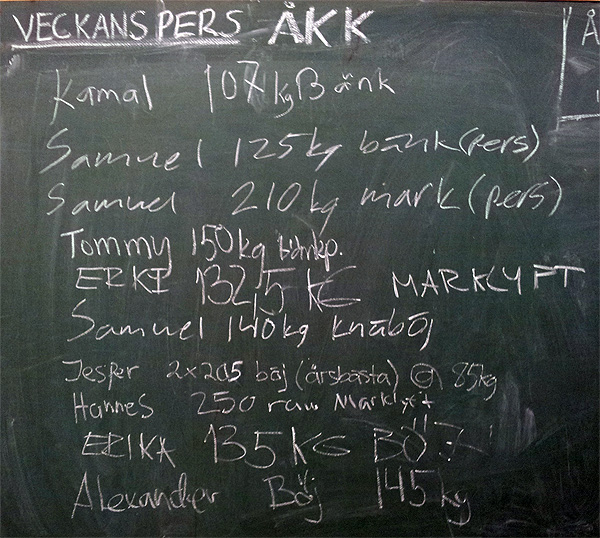 VECKANS PERS ÅKK
Å
Kamal 107 kg Bänk
Samuel 125kg bänk (pers)
Samuel 210kg mark (pers)
Tommy 150kg bänkp.
ERKI 132,5 KG MARKLYFT
Samuel 140kg knäböj
Jesper 2x205 böj (årsbästa) @ 85kg
Hannes 250 raw Marklyft
ERIKA 135 KG BÖJ
Alexander Böj 145 kg